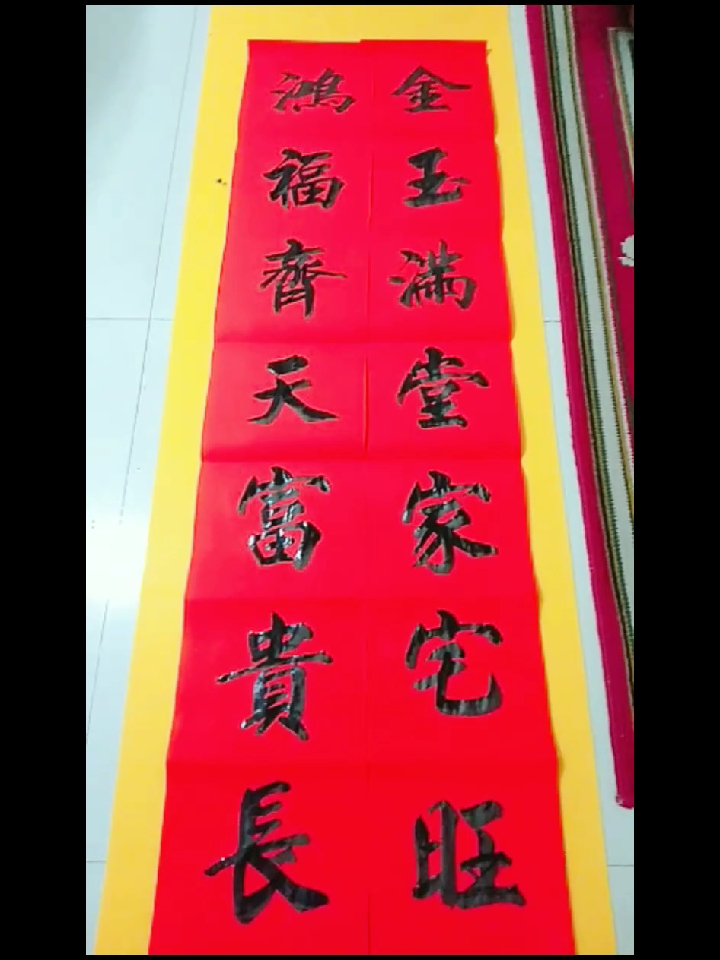 金玉滿堂家宅旺
鴻福齊天富貴長